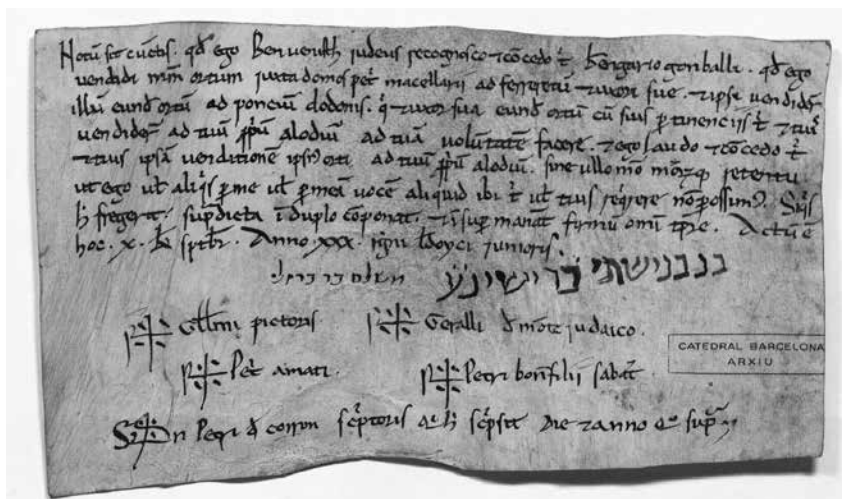 Notū sit cūctis. qđ ego Benvenisth judeus recognosco ⁊ cōcedo t̄ b̄engario goriballi. qđ ego
vendidi meū ortum juxta domos pet̄ macellarii ad ferreriū ⁊ uxori sue. ⁊ ipse vendider̄
illū eund̄ ortū ad poncium ⁊ uxor sua eund̄ ortū cū suis ꝑtinenciis t̄ ⁊ tuis
vendider̄ ad tuū ꝓpriū alodiū ad tuā volūtatē facere. ⁊ ego laudo ⁊ cōcedo t̄
⁊ tuis ipsā venditionē ipsi᷒ orti ad tuū ꝓpriū alodiū. sine ullo mō retentu
ut ego ul̄ aliq̄s ꝑ me ul̄ ꝑ meā vocē aliquid ibi t̄ ul̄ tuis reqͥrere nō possim᷒. Siqͥs
h̄ fregerit. sup̄dicta ī duplo cōponat. ⁊ īsuꝑ maneat firmū omī tp̄re. Actū ē
hoc. x. kl̄ septb̄r. Anno xxx. regni lodoyci junioris.
בנבנישתי
S Guill̄mi pictoris S Geralli đ mōte judaico.
S Pet̄ amati. S Petri bonfilii sabat̄
Petri đ corron scͥptoris qͥ h̄ scͥpsit die ⁊ anno supͣ
CATEDRAL BARCELONA
ARXIU